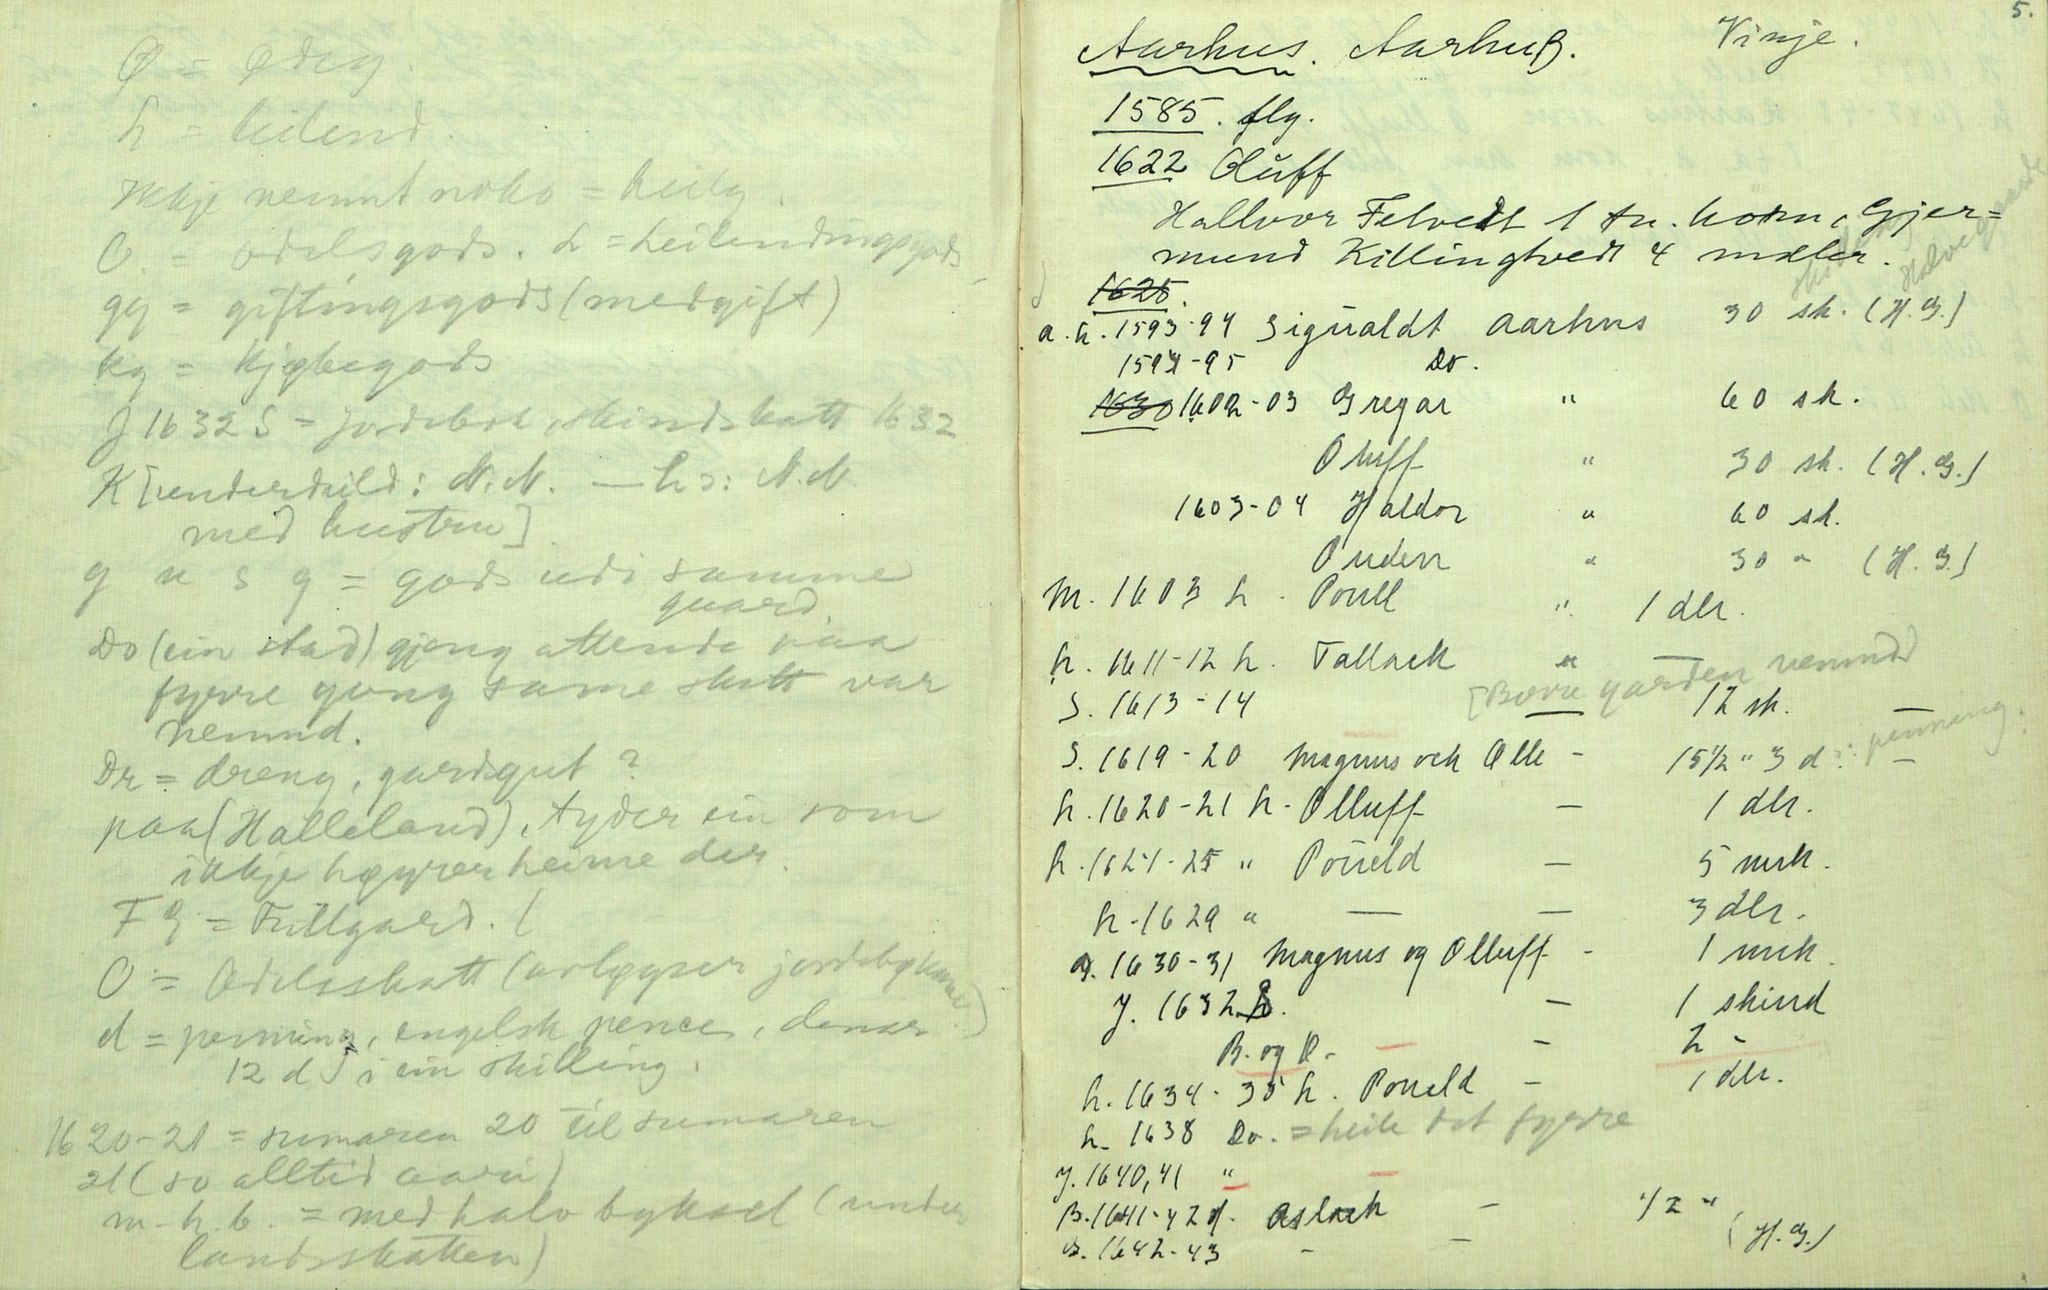 Ø = ødeg.
L = leilend.
Ikkje nemnt noko = heilg.
O. = odelsgods. L = Leilendingsgods
gg = giftingsgods (medgift)
kg = kjøbegods
J 1632 S = jordebok, skindskatt 1632
K [underskild: N. N. — h s: N. N
med hustru]
g u s g = gods udi samme
guard.
Do (ein stad) gjeng attende paa
fyrre gong same skatt var
nemnd.
Dr = dreng, gardsgut?
paa (Halleland), tyder ein som
ikkje høyrer heime der.
F G = Fullgard. (
O = Odelsskatt (avløyser jordebøkane)
d = penning, engelsk pence, denar
12 d i ein skilling.
1620-21 = sumaren 20 til sumaren
21 (so alltid )
m. h. b. = med halv byksel (under
landsskatten)
5.
Aarhus. Aarhuß. Vinje.
1585. flg.
1622 Oluff
Hallvor Felvedt 1 tn. korn, Gjer=
mund Killingtvedt 4 mæler.
1625.
a. h. 1593-94 Sigualdt Aarhus 30 sk. (H. G.)
skilling Halveg
1594-95 Do.
1630 1602-03 Gregar " 60 sk.
Oluff " 30 sk. (H. G.)
1603-04 Haldor " 60 sk.
Ouden " 30 " (H. G.)
M. 1603 h. Poull " 1 dlr.
h. 1611-12 h. Tallack "
[Berre garden nemnd
S. 1613-14 — 12 sk. —
S. 1619-20 Magnus och Olle - 15 1/2 " 3 d: penning. —
h. 1620-21 h. Olluff — 1 dlr.
h. 1624-25 " Poueld — 5 mrk.
h. 1629 " — — 3 dlr.
a. 1630-31 Magnus og Olluff - 1 mrk.
J. 1632 S. — 1 skind
B. og O. — - 2 -
h. 1634-35 h. Poueld - 1 dlr.
h. 1638 Do. = heile det fyrre
J. 1640, 41 " —
B. 1641-42 d. Aslack - 1/2 "
B. 1642-43 - — (H. G.)